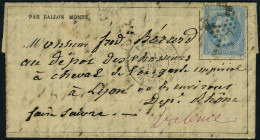 PAR BALLON MONTÉ.
Monsieur fréd Bérard
au dépôt des chasseurs
à cheval de l'ex garde impérial
à Lyon ou environs
Dépt Rhône
faire suivre
Valence